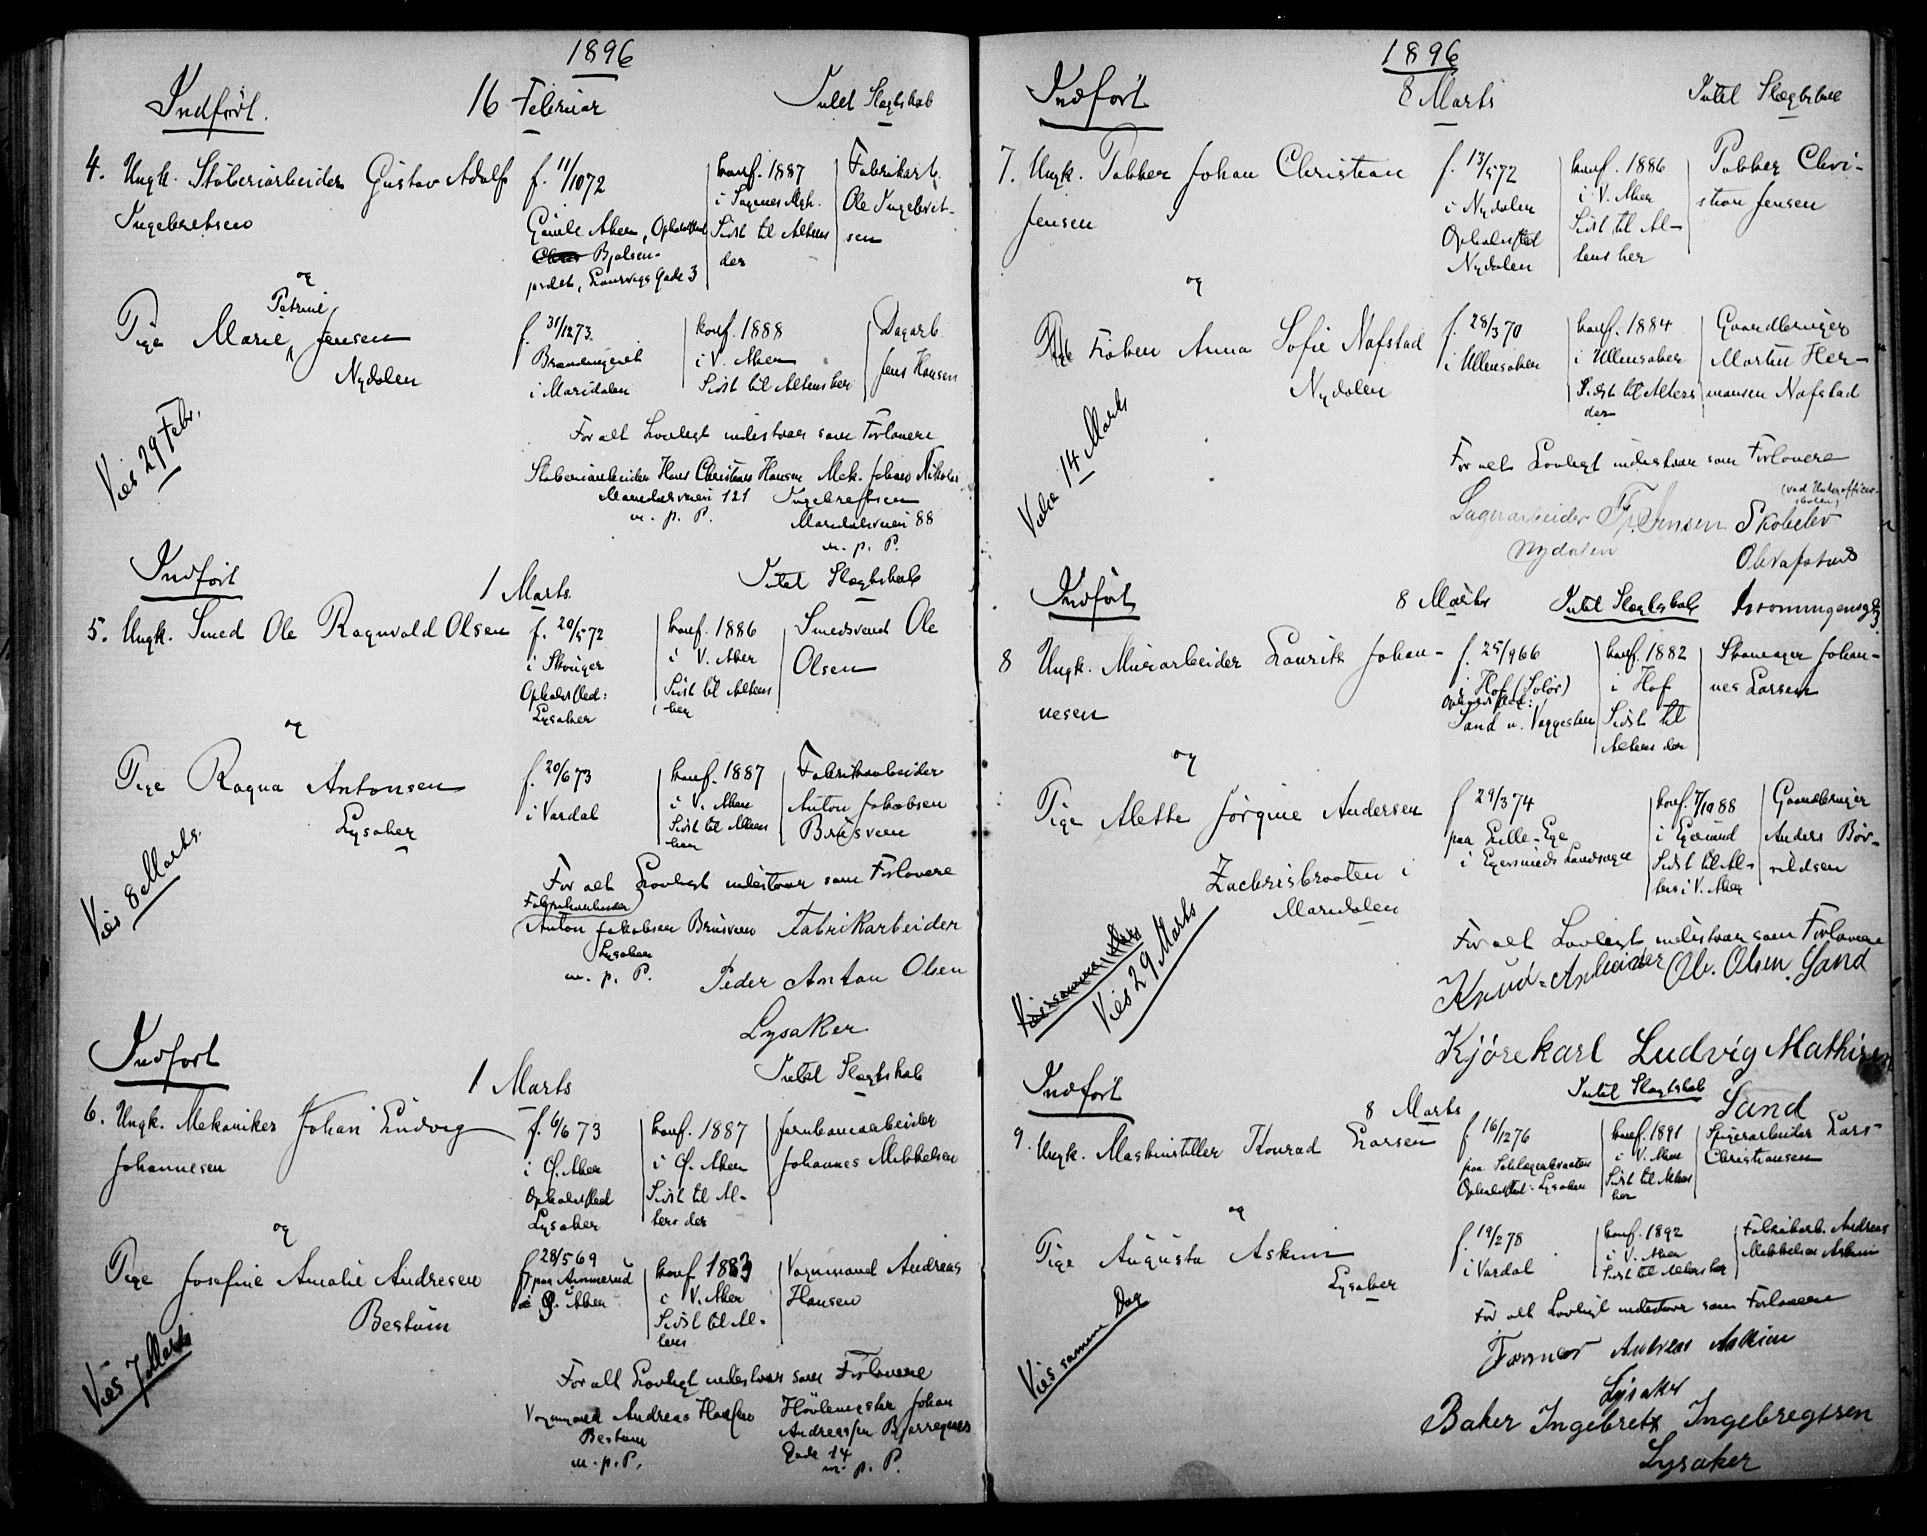 1896
Indført. 16 Februar Intet Slægtskab
4. Ungk. Støberiarbeider Gustav Adolf
Ingebretsen
f. 11/10 72
Gamle Aker, Opholdssted
Bjølsen-
jordet, Laurvigs Gade 3
konf. 1887
i Sagenes Mgh.
Sidst til Alters
der
Fabrikarb.
Ole Ingebret-
sen
og
Petrine
Pige Marie Jensen
Nydalen
f. 31/12 73.
Brændingeriet
i Maridalen
konf. 1888
i V. Aker
Sidst til Alters her
Dagarb.
Jens Hansen
Vies 29 Febr.
For alt Lovligt indestaar som Forlovere
Støberiarbeider Hans Christian Hansen
Maridalsveien 121
m. p. P.
Mek. Johan Nikolai
Ingebretsen
Maridalsveien 88
m. p. P.
Indført 1 Marts. Intet Slægtskab
5. Ungk. Smed Ole Ragnvald Olsen
f. 20/5 72
i Skouger
Opholdssted:
Lysaker
konf. 1886
i V. Aker
Sidst til Alters
her
Smedsvend Ole
Olsen
og
Pige Ragna Antonsen
Lysaker
f. 20/6 73
i Vardal
konf. 1887
i V. Aker
Sidst til Alters
her
Fabrikarbeider
Anton Jakobsen
Brusveen
Vies 8 Marts.
For alt Lovligt indestaar som Forlovere
Fabrikarbeider
Anton Jakobsen Brusveen
Lysaker
m. p. P.
Fabrikarbeider
Peder Anton Olsen
Lysaker
Indført 1 Marts Intet Slægtskab
6. Ungk. Mekaniker Johan Ludvig
Johannesen
f. 6/6 73
i Ø. Aker
Opholdssted
Lysaker
konf. 1887
i Ø. Aker
Sidst til Al-
ters der
Jernbanearbeider
Johannes Mikkelsen
og
Pige Josefine Amalie Andresen
Bestum
f. 28/5 69
paa Ammerud
i Ø. Aker
konf. 1883
i V. Aker
Sidst til Al-
ters
Vognmand Andreas
Hansen
Vies 7 Marts
For alt Lovligt indestaar som Forlovere
Vognmand Andreas Hansen
Bestum
m. p. P.
Høvlemester Johan
Andreassen Bjerregaards
Gade 14
m. p. P.
1896
Indført 8 Marts Intet Slægtskab
7. Ungk. Pakker Johan Christian
Jensen
f. 13/5 72
i Nydalen
Opholdssted
Nydalen
konf. 1886
i V. Aker
Sidst til Al-
ters her
Pakker Chri-
stian Jensen
og
Frøken Anna Sofie Nafstad
Nydalen
f. 28/3 70
i Ullensaker
konf. 1884
i Ullensaker
Sidst til Alters
der
Gaardbruger
Martin Her-
mansen Nafstad
14 Marts
For alt Lovligt indestaar som Forlovere
Lagerarbeider Fr. Jensen
Nydalen
(ved Underofficer-
skolen)
Skobelev
O Nafstad
Indført 8 Marts Intet Slægtskab
8 Ungk. Murarbeider Laurits Johan-
nesen
f. 25/9 66
i Hof (Solør)
Opholdssted:
Sand v. Vaggesten
konf. 1882
i Hof
Sidst til
Alters der
Skomager Johan-
nes Larsen
og
Pige Alette Jørgine Andersen
Zachrisbraaten i
Maridalen
f. 29/3 74
paa Lille-Ege
i Egersunds Landsogn
konf. 7/10 88
i Egesund
Sidst til Al-
ters i V. Aker
Gaardbruger
Anders Bør-
rildsen
Vies 29 Marts
For alt Lovligt indestaar som Forlovere
Knud-Arbeider Ole Olsen. Sand
Kjörekarl Ludvig Mathisen
Sand
Indført 8 Marts Intet Slægtskab
9. Ungk. Maskinstiller Konrad Larsen
f. 16/12 76
Opholdssted: Lysaker
konf. 1891
i V. Aker
Sidst til Alters
her
Spigerarbeider Lars
Christiansen
og
Pige Augusta Askim
Lysaker
f. 19/2 78
i Vardal
konf. 1892
i V. Aker
Sidst til Alters her
Fabrikarb. Andreas
Mikkelsen Askim
Vies samme Dag
For alt Lovligt indestaar som Forlovere
Former Andreas Askim
Lysaker
Baker Ingebret Ingebregtsen
Lysaker